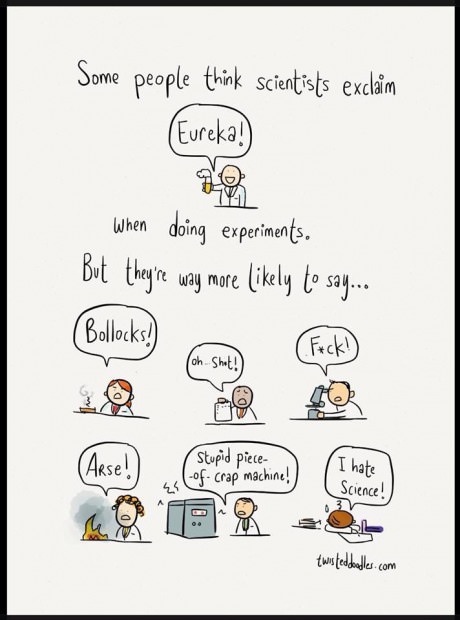 Some people think scientists exclaim
Eureka!
when doing experiments.
But they're way more likely to say...
Bollocks!
oh...Sh*t!
F*ck!
ARse!
Stupid piece-
-of-crap machine!
I hate
Science!
twisteddoodles.com